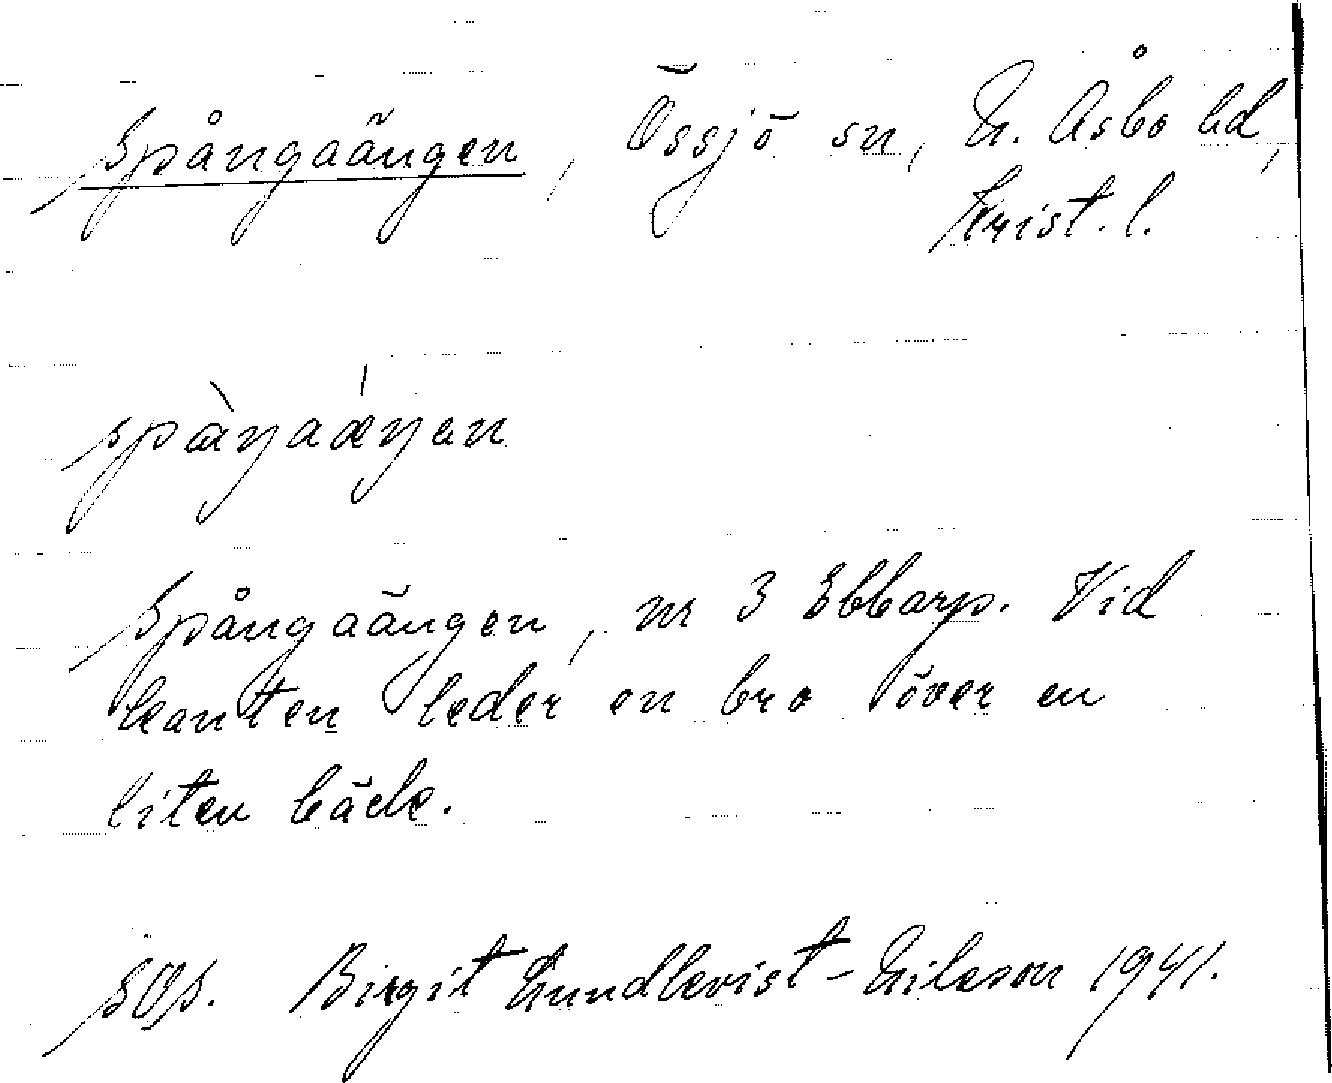 Spångaängen, Össjö sn, N. Åsbo hd,
Krist. l.
spàŋaǽŋen
Spångaängen, nr 3 Ebbarp. Vid
kanten leder en bro över en
liten bäck.
SOS. Birgit Lundkvist-Nilsson 1941.